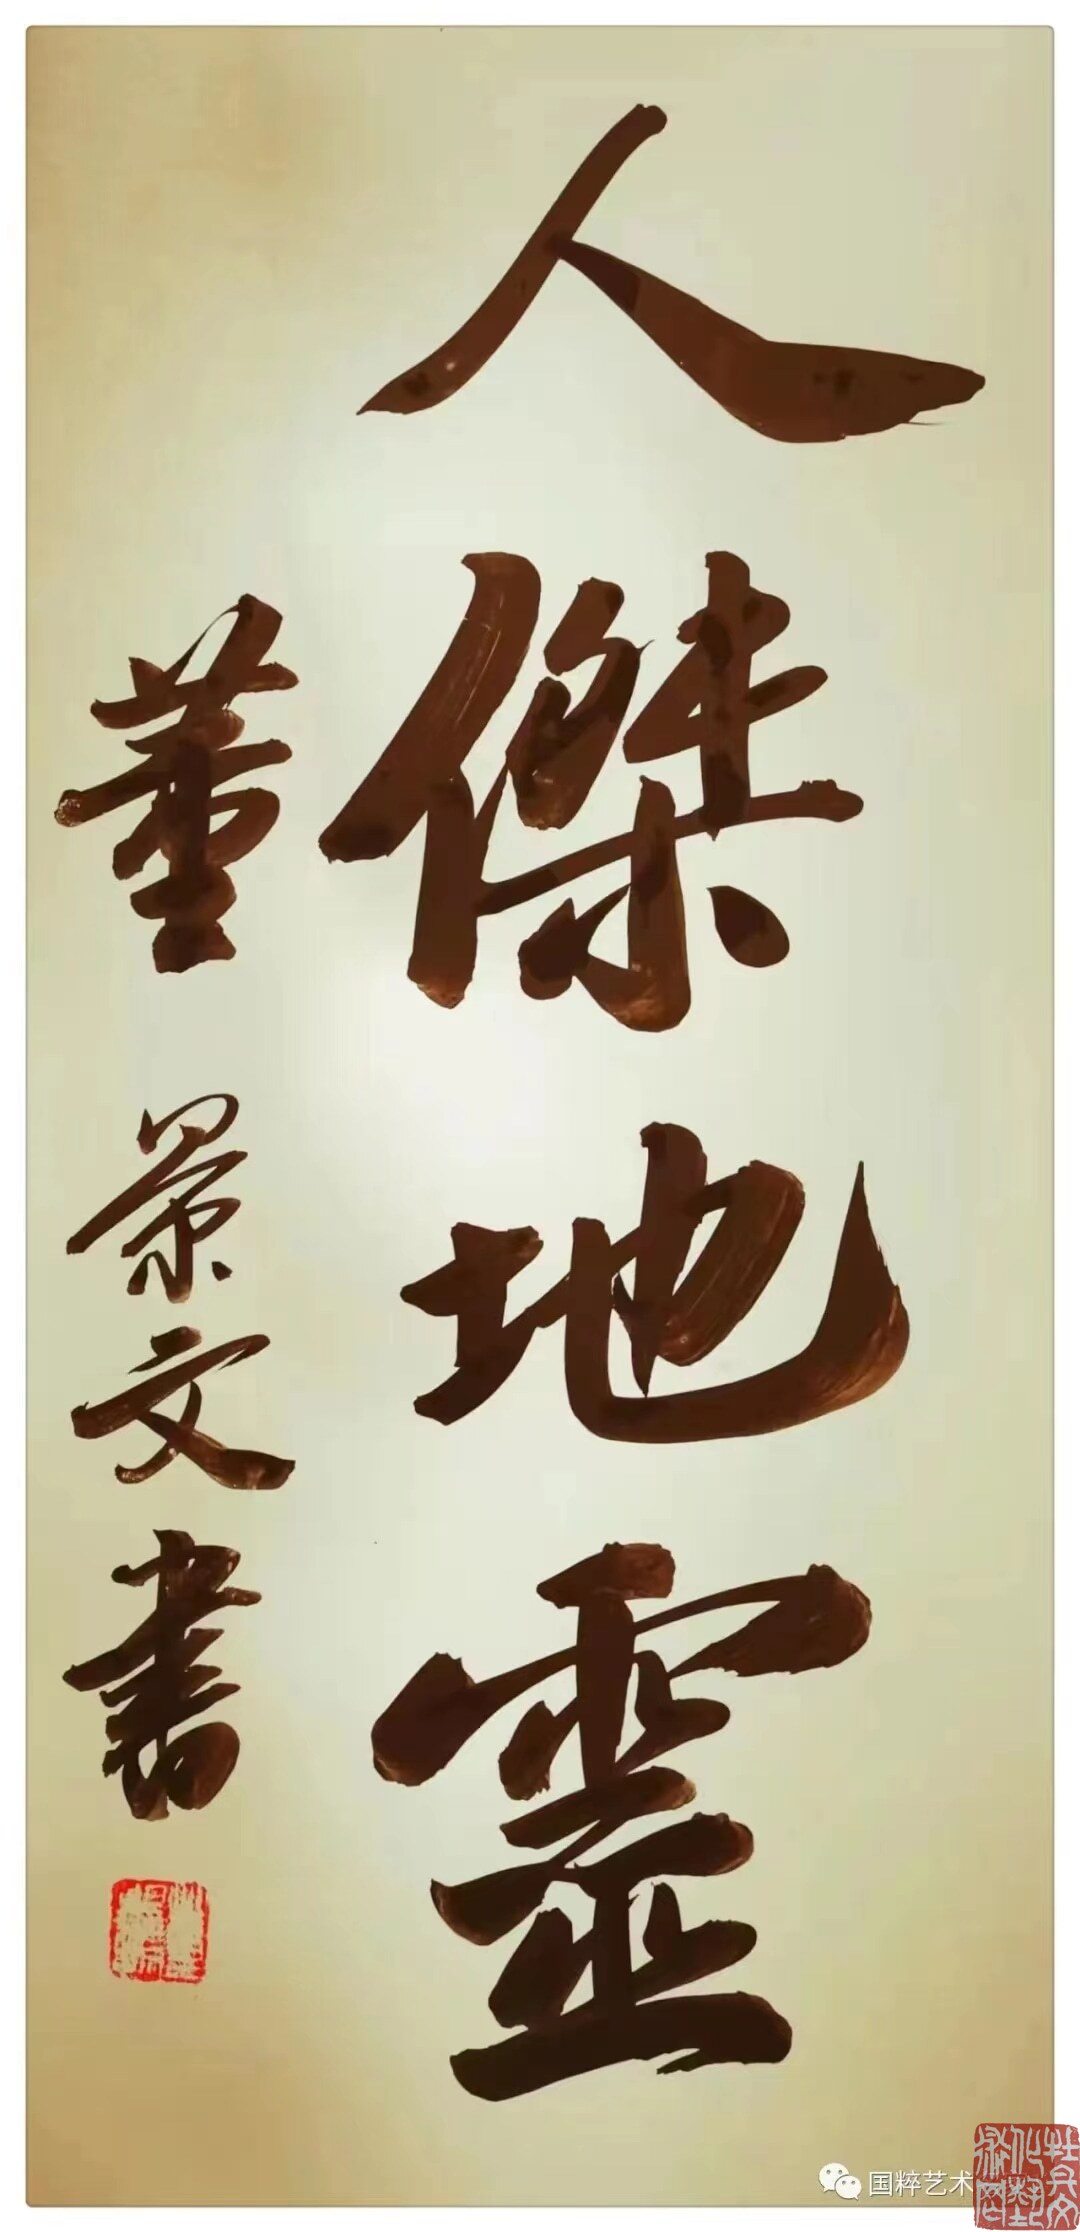 人傑地靈
董景文書
国粹艺术